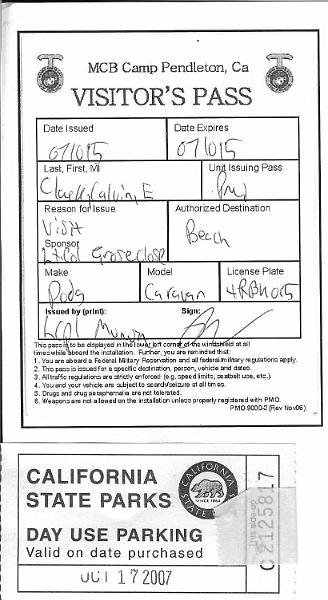 MCB Camp Pendleton, Ca
VISITOR'S PASS
Date Issued Date Expires
071015 071015
Last, First, MI Unit Issuing Pass
Clark, Calvin, E
Reason for Issue Authorized Destination
Visit Beach
Sponsor
LtCol Groseclose
Make Model License Plate
Dodg Caravan 4RBH015
Issued by (print): Sign:
This pass is to be displayed in the lower left corner of the windshield at all
times while aboard the installation. Further, you are reminded that:
1. You are aboard a Federal Military Reservation and all federal/military regulations apply.
2. This pass is issued for a specific destination, person, vehicle and dates.
3. All traffic regulations are strictly enforced (e.g. speed limits, seatbelt use, etc.).
4. You and your vehicle are subject to search/seizure at all times.
5. Drugs and drug paraphernalia are not tolerated.
6. Weapons are not allowed on the installation unless properly registered with PMO.
PMO 9000-2 (Rev Nov06)
CALIFORNIA
STATE PARKS
CALIFORNIA
STATE
SINCE 1864
DAY USE PARKING
Valid on date purchased
OCT 17 2007
2125817